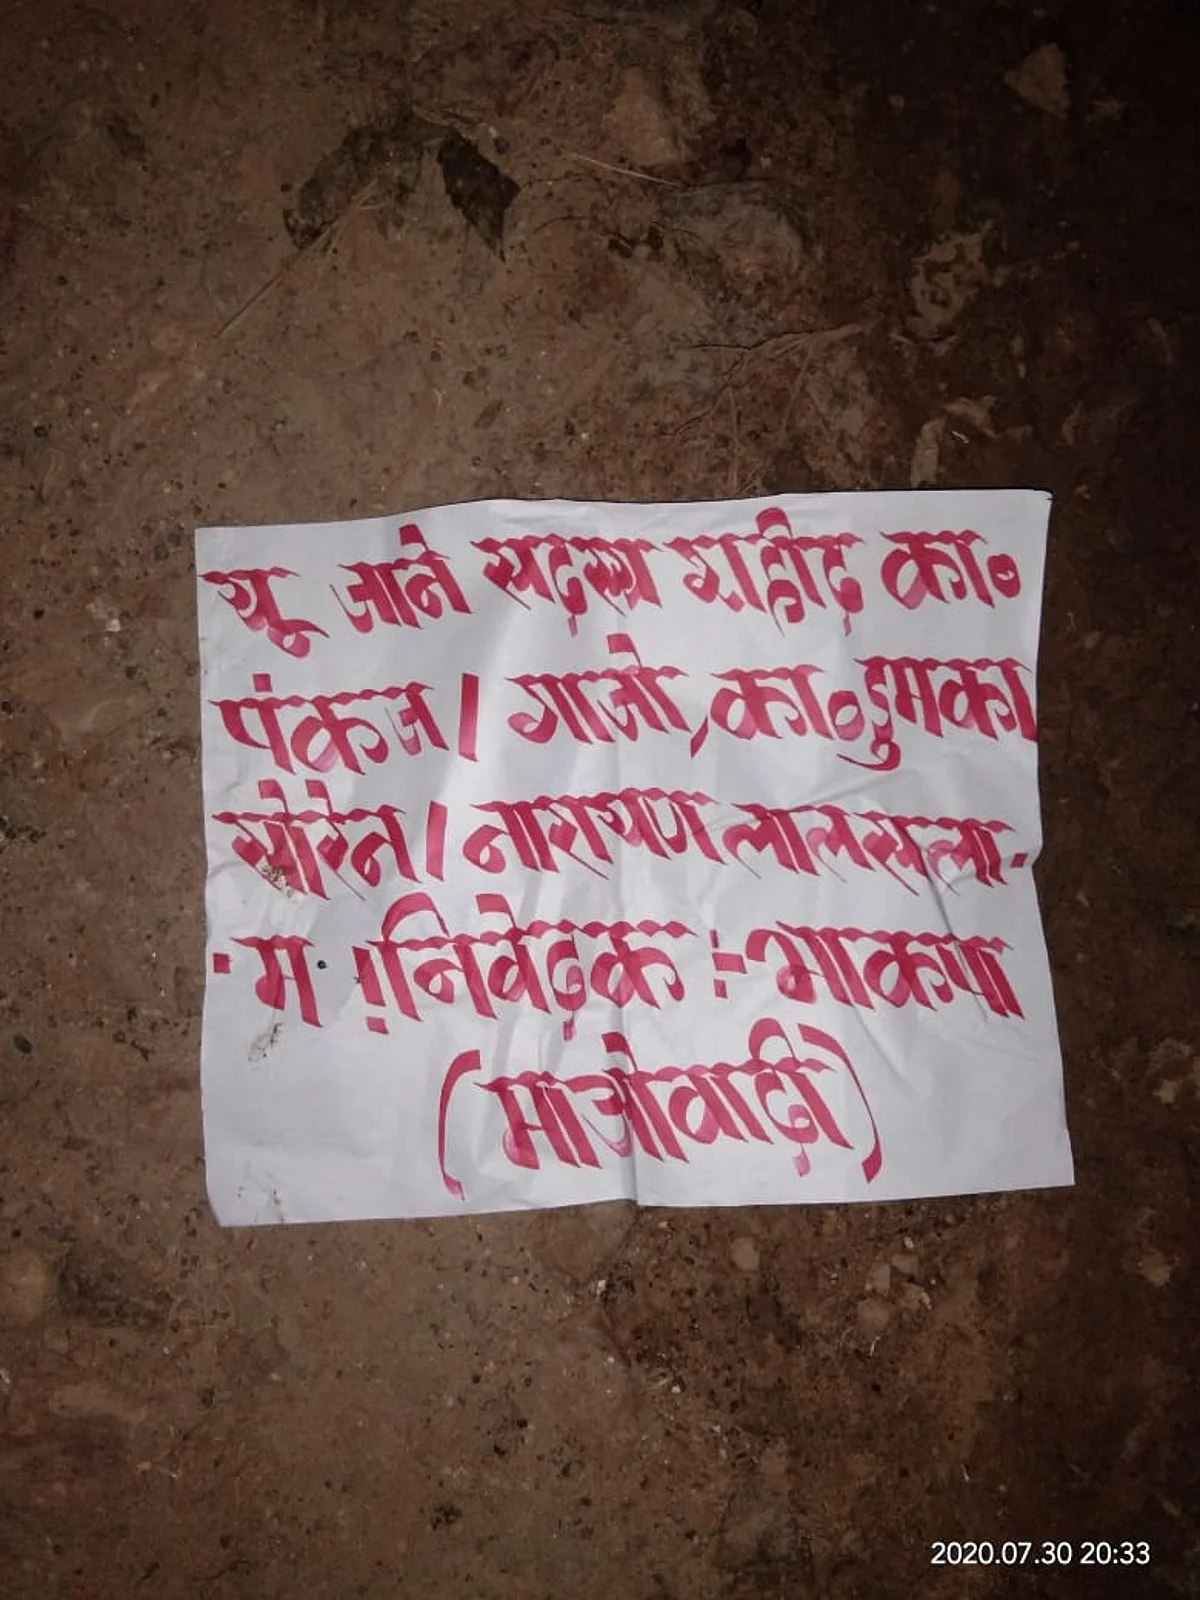 यू जाने सदस्य शहीद का०
पंकज / गाजो, का० डुमका
सोरेन / नारायण लालसला-
-म ! निवेदक :- भाकपा
(माओवादी)
2020.07.30 20:33